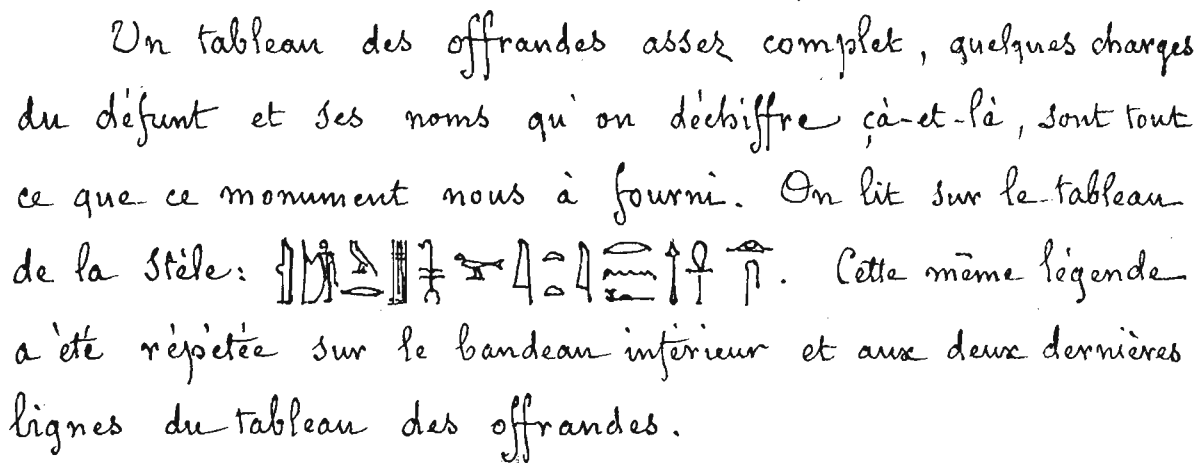 Un tableau des offrandes assez complet, quelques charges
du défunt et ses noms qu'on déchiffre çà-et-là, sont tout
ce que ce monument nous à fourni. On lit sur le tableau
de la Stèle: . Cette même légende
a été répétée sur le bandeau inférieur et aux deux dernières
lignes du tableau des offrandes.